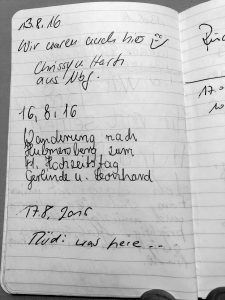 13.8.16
Wir waren auch hier
Chrissy u. Harti
aus Nbg.
16.8.16
Wanderung nach
Hubmersberg zum
Hochzeitstag
Gerlinde u. Leonhard
17.8.2016
Rüdi was here...